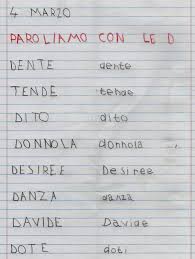 4 MARZO
PAROLIAMO CON LE D
DENTE dente
TENDE tende
DITO dito
DONNOLA donnola
DESIREE Desiree
DANZA danza
DAVIDE Davide
DOTE doti